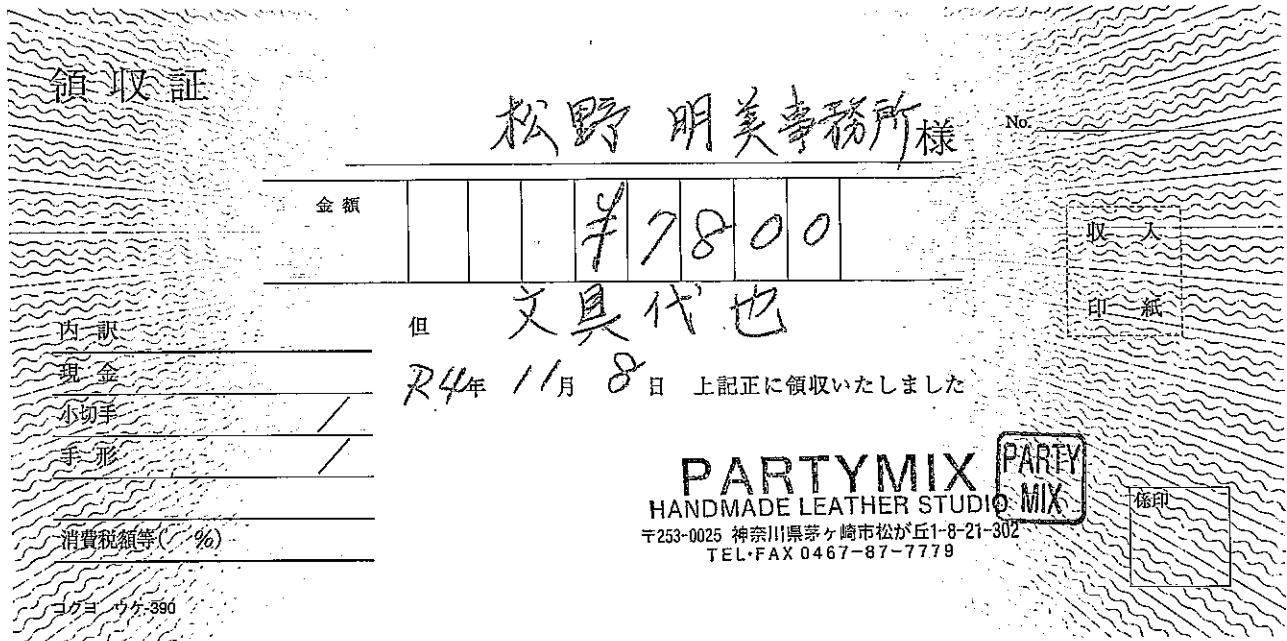 領収証
松野 明美事務所様
No.
金額 ¥7800
収入
印紙
但 文具代也
R4年 11月 8日 上記正に領収いたしました
内訳
現金
小切手 /
手形 /
消費税額等( %)
PARTYMIX
HANDMADE LEATHER STUDIO
〒253-0025 神奈川県茅ヶ崎市松が丘1-8-21-302
TEL・FAX 0467-87-7779
PARTY
MIX
係印
コクヨ ウケ-390